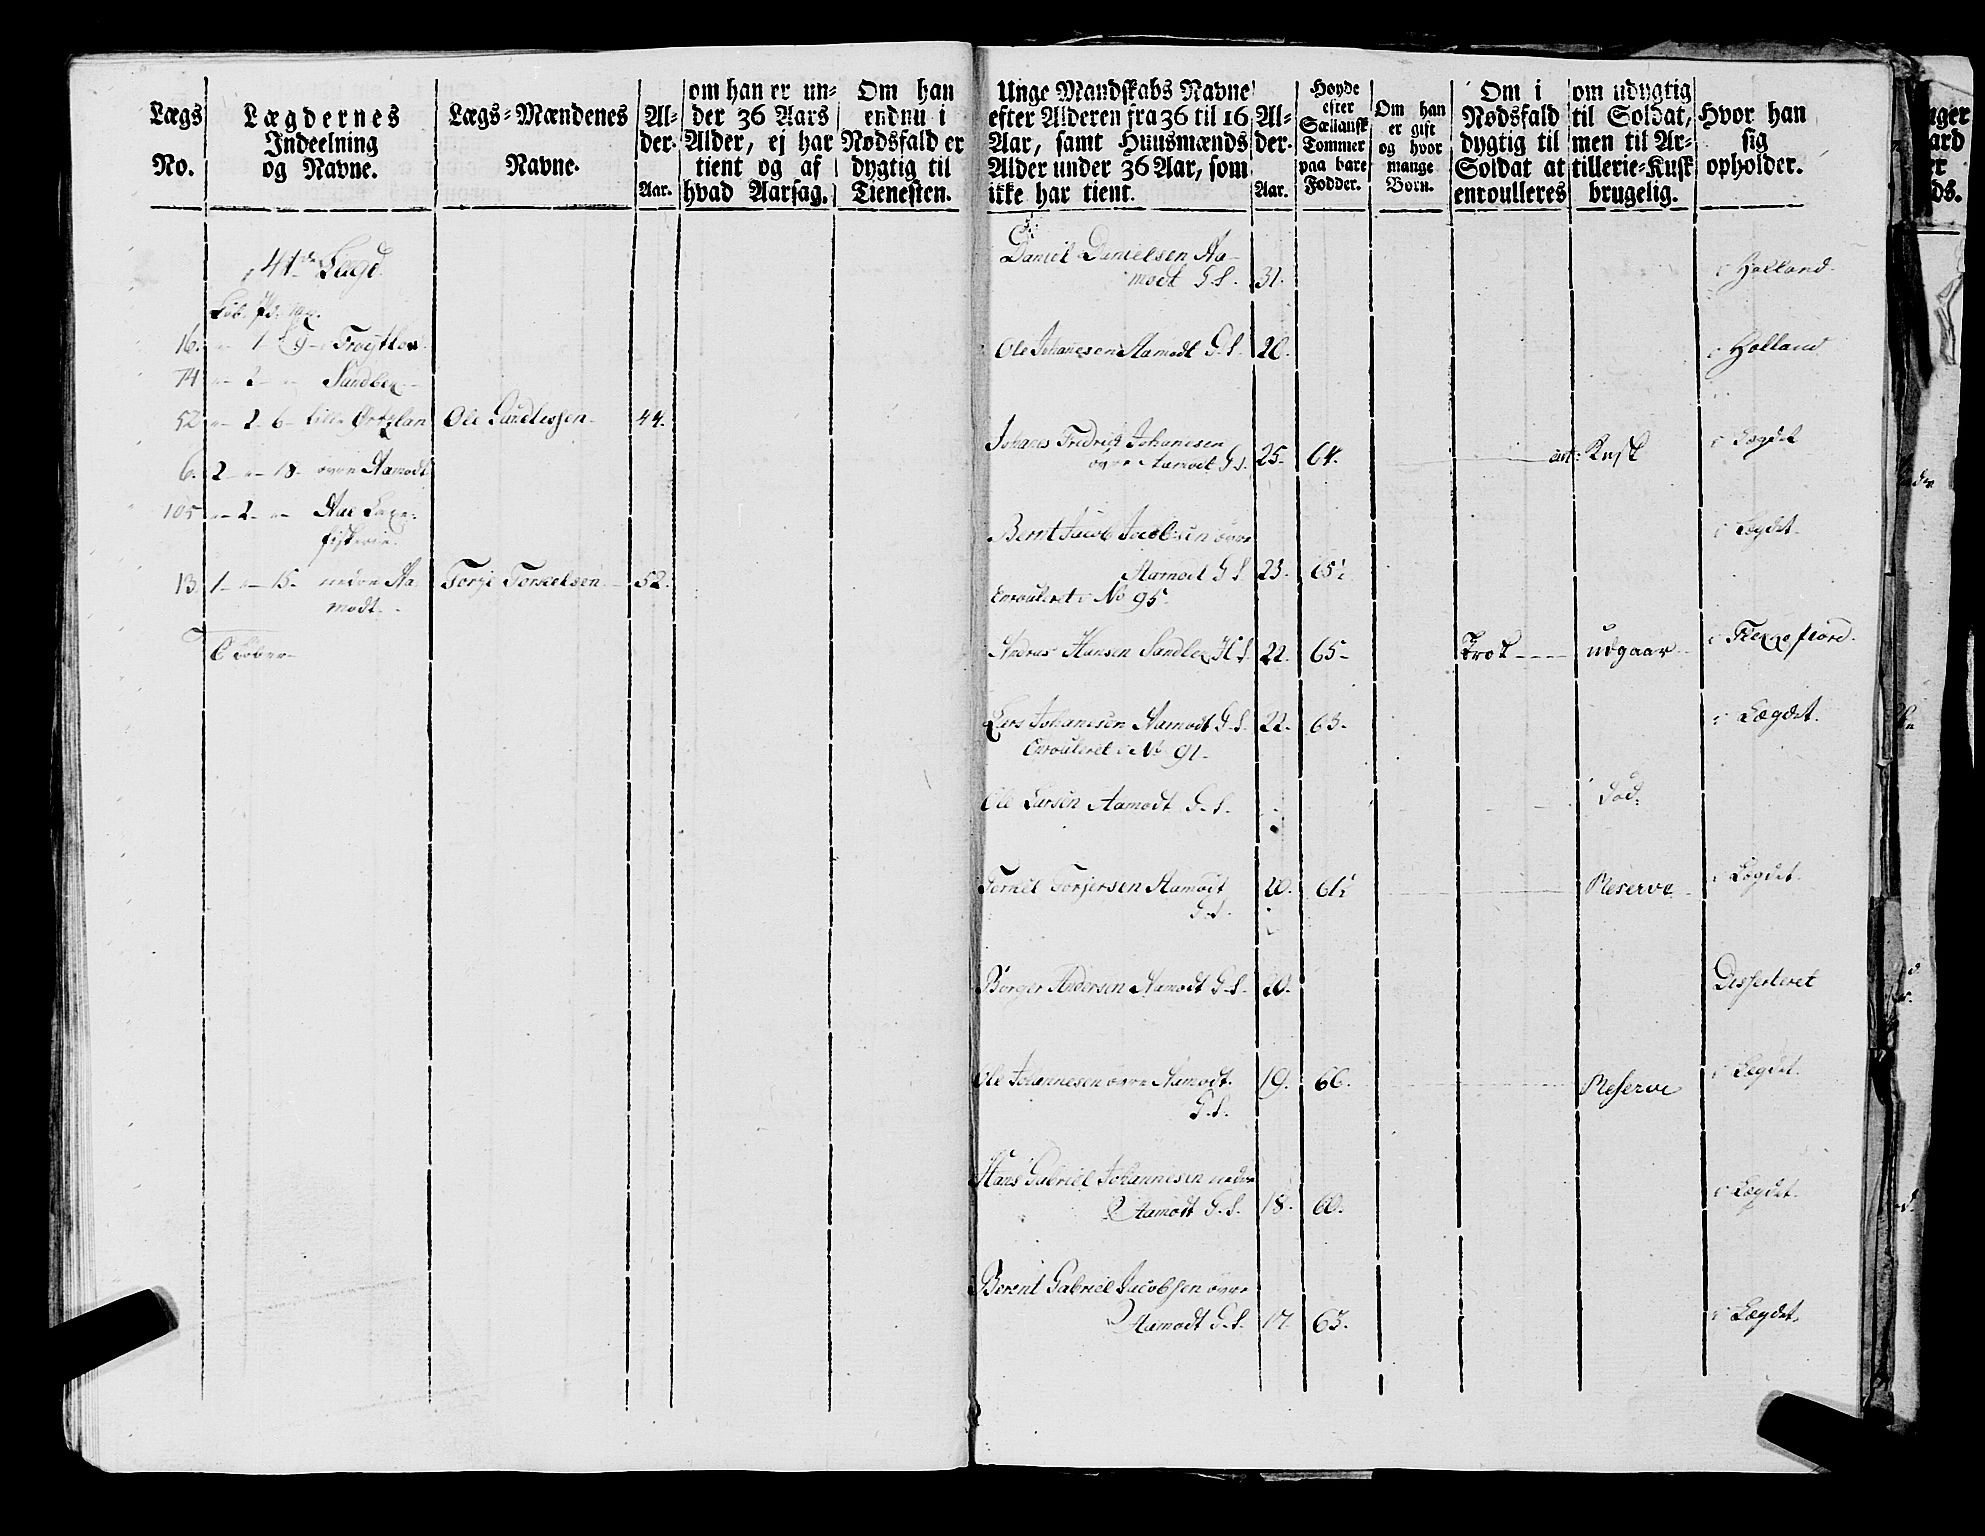 Lægs
No.
Lægdernes
Indeelning
og Navne.
Lægs-Mændenes
Navne.
Al-
der.
Aar.
om han er un-
der 36 Aars
Alder, ej har
tient og af
hvad Aarsag.
Om han
endnu i
Nødsfald er
dygtig til
Tienesten.
41de Lægd.
16. 1
74 2 Sandber
52 2 6 Lille Ole 44.
6. 2 18. øvre Aamodt
105 2 Aae Laxe-
fiskerie.
13. 1 15. nedre Aa- Torje Torkelsen 52.
modt.
Unge Mandskabs Navne
efter Alderen fra 36 til 16
Aar, samt Huusmænds
Alder under 36 Aar, som
ikke har tient.
Al-
der.
Aar.
Høyde
efter
Sællansk
Tommer
paa bare
Fødder.
Om han
er gift
og hvor
mange
Børn.
Om i
Nødsfald
dygtig til
Soldat at
enroulleres
om udygtig
til Soldat,
men til Ar-
tillerie-Kusk
brugelig.
Hvor han
sig
opholder.
Daniel Danielsen Aa-
modt G. S. 31. i Holland.
Ole Johanesen Aamodt G. S. 20. i Holland
Johanes Fredrich Johanesen
øvre Aamodt G S. 25. 64. art: Kusk i Lægdet
Bernt Jacob Jacobsen øvre i Lægdet.
Aamodt G S. 23. 65½
Enroulleret i No 95.
Andreas Hansen H S. 22. 65 udgaar i Flekkefiord.
Lars Johanesen Aamodt G. S. 22. 63. i Lægdet.
Enroulleret i No 91.
Ole Larsen Aamodt G. S. død.
Torkel Torjersen Aamodt 20. 61½ Reserve i Lægdet.
G. S.
Børger Andersen Aamodt G. S. 20. Disserteret
Ole Johannesen øvre Aamodt. 19. 66. Reserve i Lægdet.
G. S.
Hans Gabriel Johannesen nedre
Aamodt G. S. 18. 60. i Lægdet.
Berent Gabriel Jacobsen øvre
Aamodt G. S. 17. 63. i Lægdet.